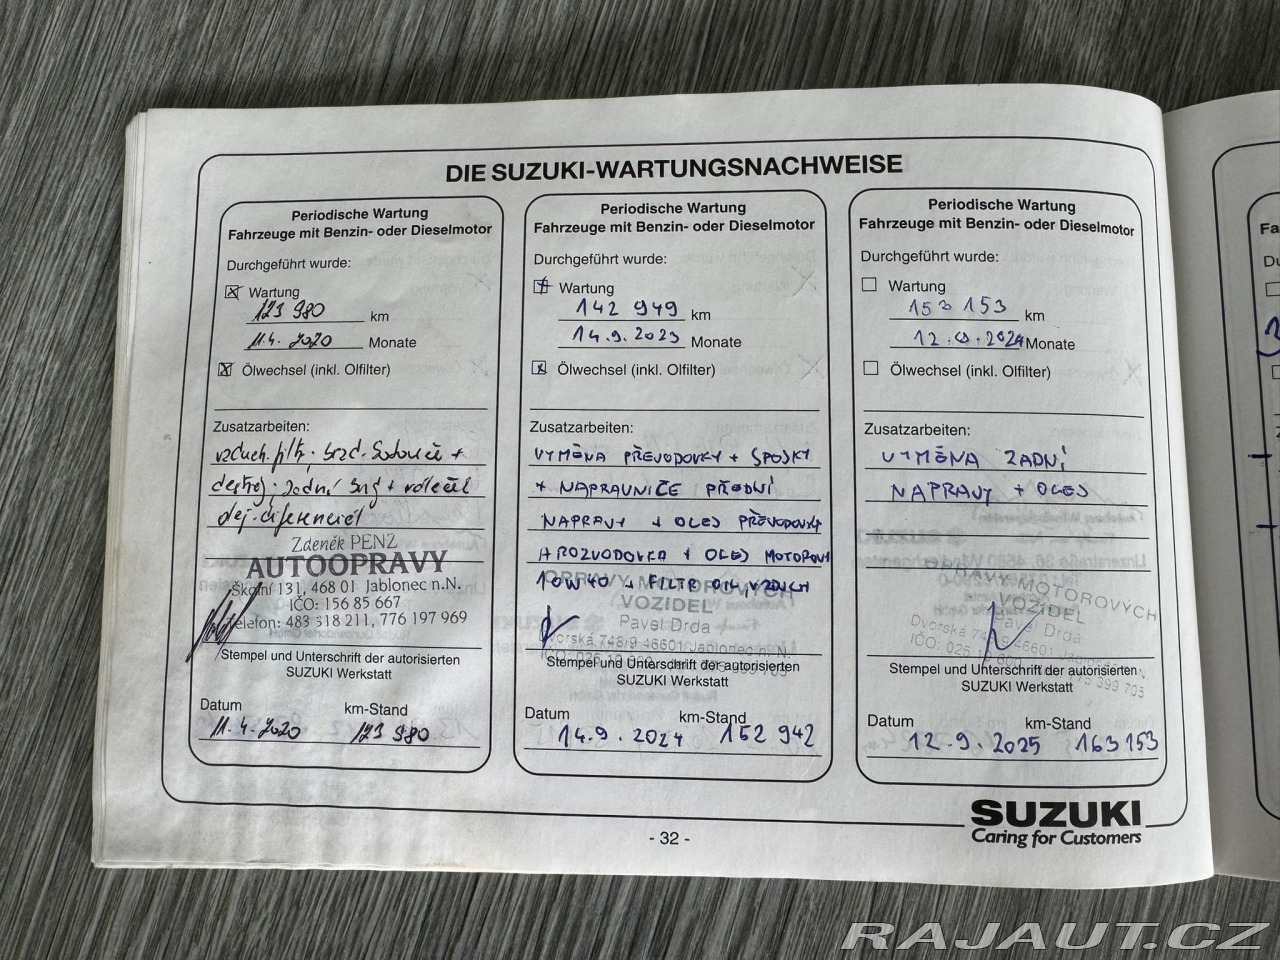 DIE SUZUKI-WARTUNGSNACHWEISE
Periodische Wartung
Fahrzeuge mit Benzin- oder Dieselmotor
Durchgeführt wurde:
Wartung
123 980 km
11.4. 2020 Monate
Ölwechsel (inkl. Olfilter)
Zusatzarbeiten:
vzduch. filtr.
Zdeněk PENZ
AUTOOPRAVY
Školní 131, 468 01 Jablonec n.N.
IČO: 156 85 667
Telefon: 483 318 211, 776 197 969
Stempel und Unterschrift der autorisierten
SUZUKI Werkstatt
Datum km-Stand
11.4.2020 123 980
Periodische Wartung
Fahrzeuge mit Benzin- oder Dieselmotor
Durchgeführt wurde:
Wartung
142 949 km
14.9.2023 Monate
Ölwechsel (inkl. Olfilter)
Zusatzarbeiten:
VÝMĚNA PŘEVODOVKY + SPOJKY
+ NAPRAVNICE PŘEDNÍ
NAPRAVY + OLEJ PŘEVODOVKY
A ROZVODOVKA + OLEJ MOTOROVÝ
10W40 + FILTR OIL, VZDUCH
OPRAVY MOTOROVÝCH
VOZIDEL
Pavel Drda
Dvorská 748/9 46601 Jablonec n. N.
Stempel und Unterschrift der autorisierten
SUZUKI Werkstatt
Datum km-Stand
14.9.2024 152 942
Periodische Wartung
Fahrzeuge mit Benzin- oder Dieselmotor
Durchgeführt wurde:
Wartung
153 153 km
Monate
Ölwechsel (inkl. Olfilter)
Zusatzarbeiten:
VÝMĚNA ZADNÍ
NAPRAVY + OLEJ
OPRAVY MOTOROVÝCH
VOZIDEL
Pavel Drda
Dvorská 748/9 46601 Jablonec
Stempel und Unterschrift der autorisierten
SUZUKI Werkstatt
Datum km-Stand
12.9.2025 163 153
SUZUKI
Caring for Customers
- 32 -
RAJAUT.CZ